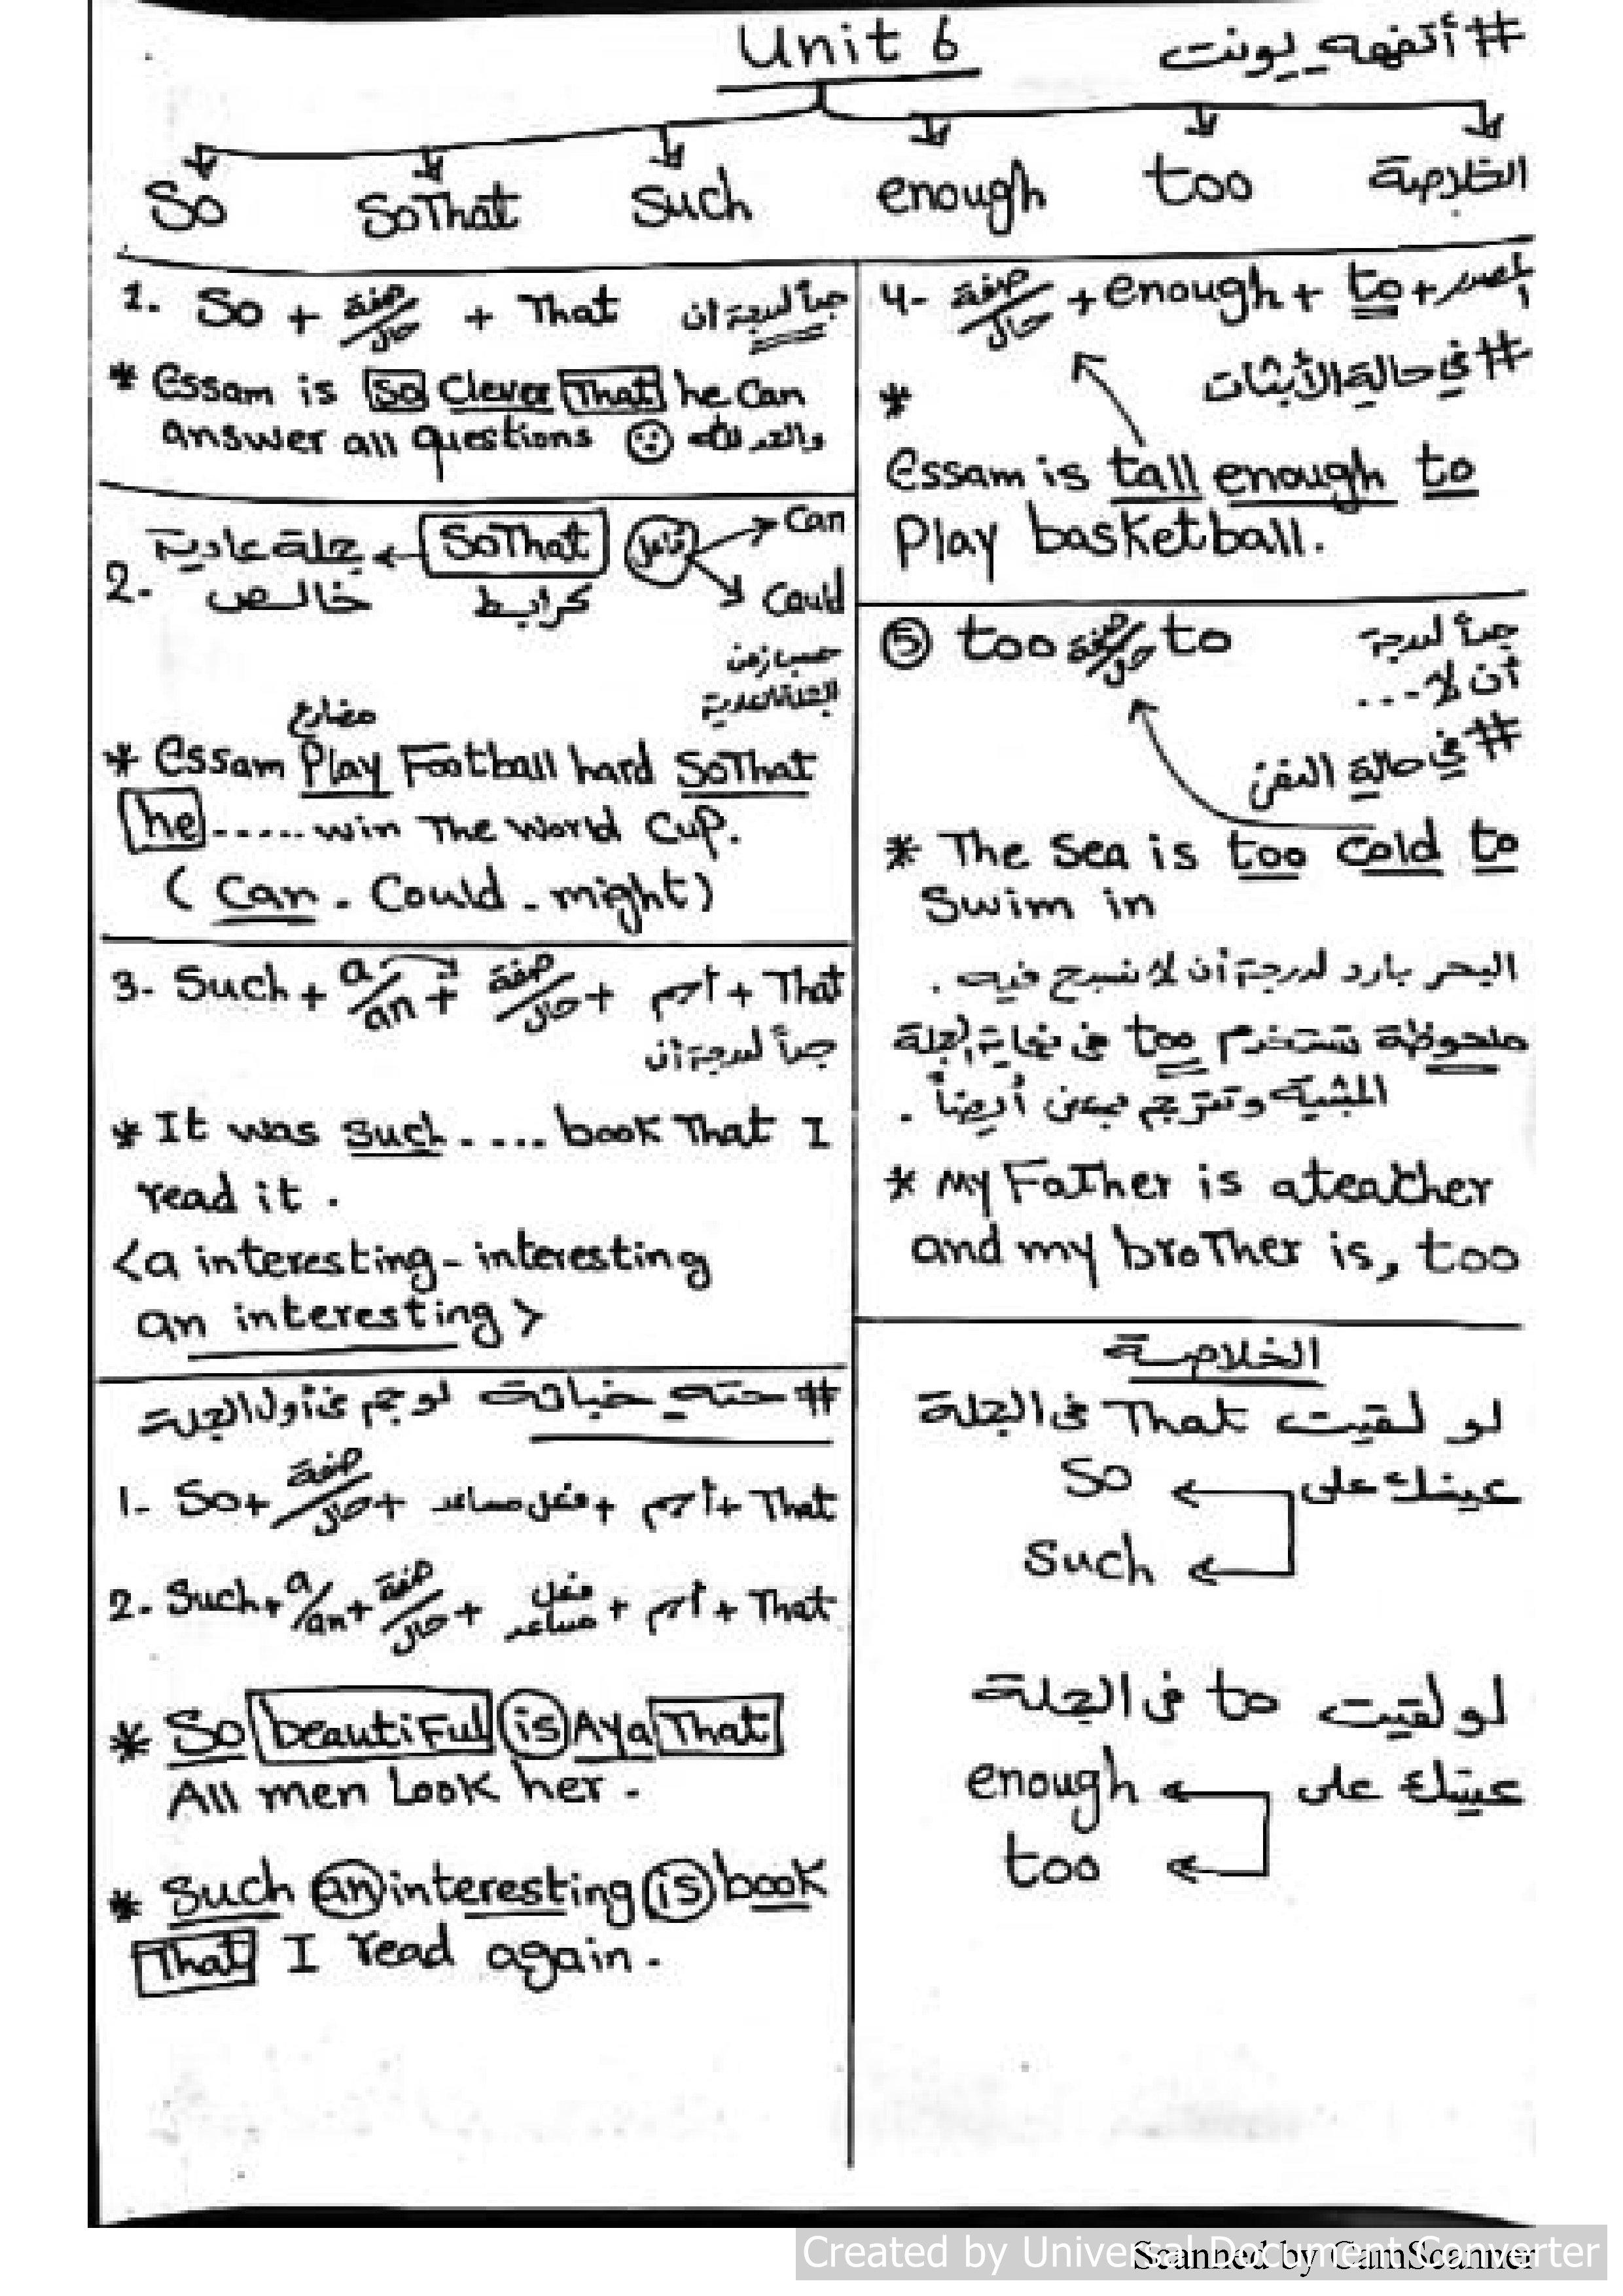 Unit 6
# أتفهه يونت
So SoThat Such enough too الخلاصة
1. So + صفة/حال + That جداً لدرجة ان
* Essam is So Clever That he Can
answer all questions والحمد لله
2. جملة عادية خالص ← SoThat كرابط فاعل → Can
Could
حسب زمن
الجملة العادية
مضارع
* Essam Play Football hard SoThat
he ...... win The World Cup.
( Can - Could - might )
3- Such + a/an + صفة/حال + اسم + That
جداً لدرجة ان
* It was Such .... book That I
read it .
<a interesting - interesting
an interesting >
# حته خباثة لو جم فى أول الجملة
1- So + صفة/حال + فعل مساعد + اسم + That
2- Such + a/an + صفة/حال + فعل مساعد + اسم + That
* So beautiful is Aya That
All men Look her .
* Such an interesting is book
That I read again .
4- صفة/حال + enough + to + المصدر
# في حالة الأثبات
*
Essam is tall enough to
Play basketball.
⑤ too صفة/حال to جداً لدرجة
أن لا ...
# في حالة النفى
* The Sea is too Cold to
Swim in
البحر بارد لدرجة أن لا نسبح فيه .
ملحوظة تستخدم too فى نهاية الجملة
المثبتة وتترجم بمعنى أيضاً .
* My FaTher is a teather
and my broTher is, too
الخلاصة
لو لقيت That فى الجملة
عينك على So
Such
لو لقيت to فى الجملة
عينك على enough
too
Created by Universal Document Converter
Scanned by CamScanner